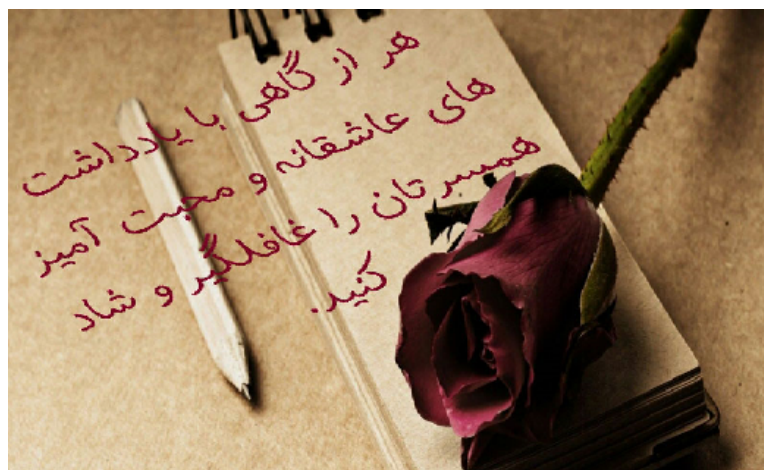 هر از گاهی با یادداشت
های عاشقانه و محبت آمیز
همسر تان را غافلگیر و شاد
کنید.